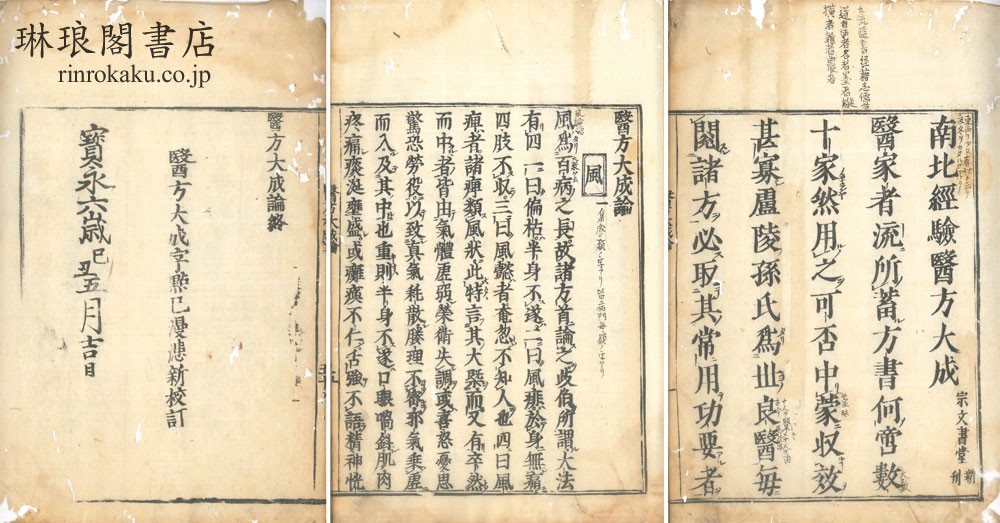 琳琅閣書店
rinrokaku.co.jp
南北經驗醫方大成
宗文書堂
新刊
醫家者流所蓄方書何啻數
十家然用之可否中蒙収效
甚寡盧陵孫氏爲世良醫毎
閱諸方必取其常用功要者
醫方大成論
風
一
風爲百病之長故諸方首論之岐伯所謂大法
有四一曰偏枯半身不遂二曰風痱於身無痛
四肢不収三曰風懿者奄忽不知人也四曰風
痺者諸痺類風狀此特言其大槩而又有卒然
而中者皆由氣體虛弱榮衛失調或喜怒憂思
驚恐勞役以致真氣耗散腠理不密邪氣乗虛
而入及其中也重則半身不遂口眼喎斜肌肉
疼痛痰涎壅盛或癱瘓不仁舌強不語精神恍
醫方大成論終
醫方大成字㸃已漫悲新校訂
寳永六歳己丑五月吉日